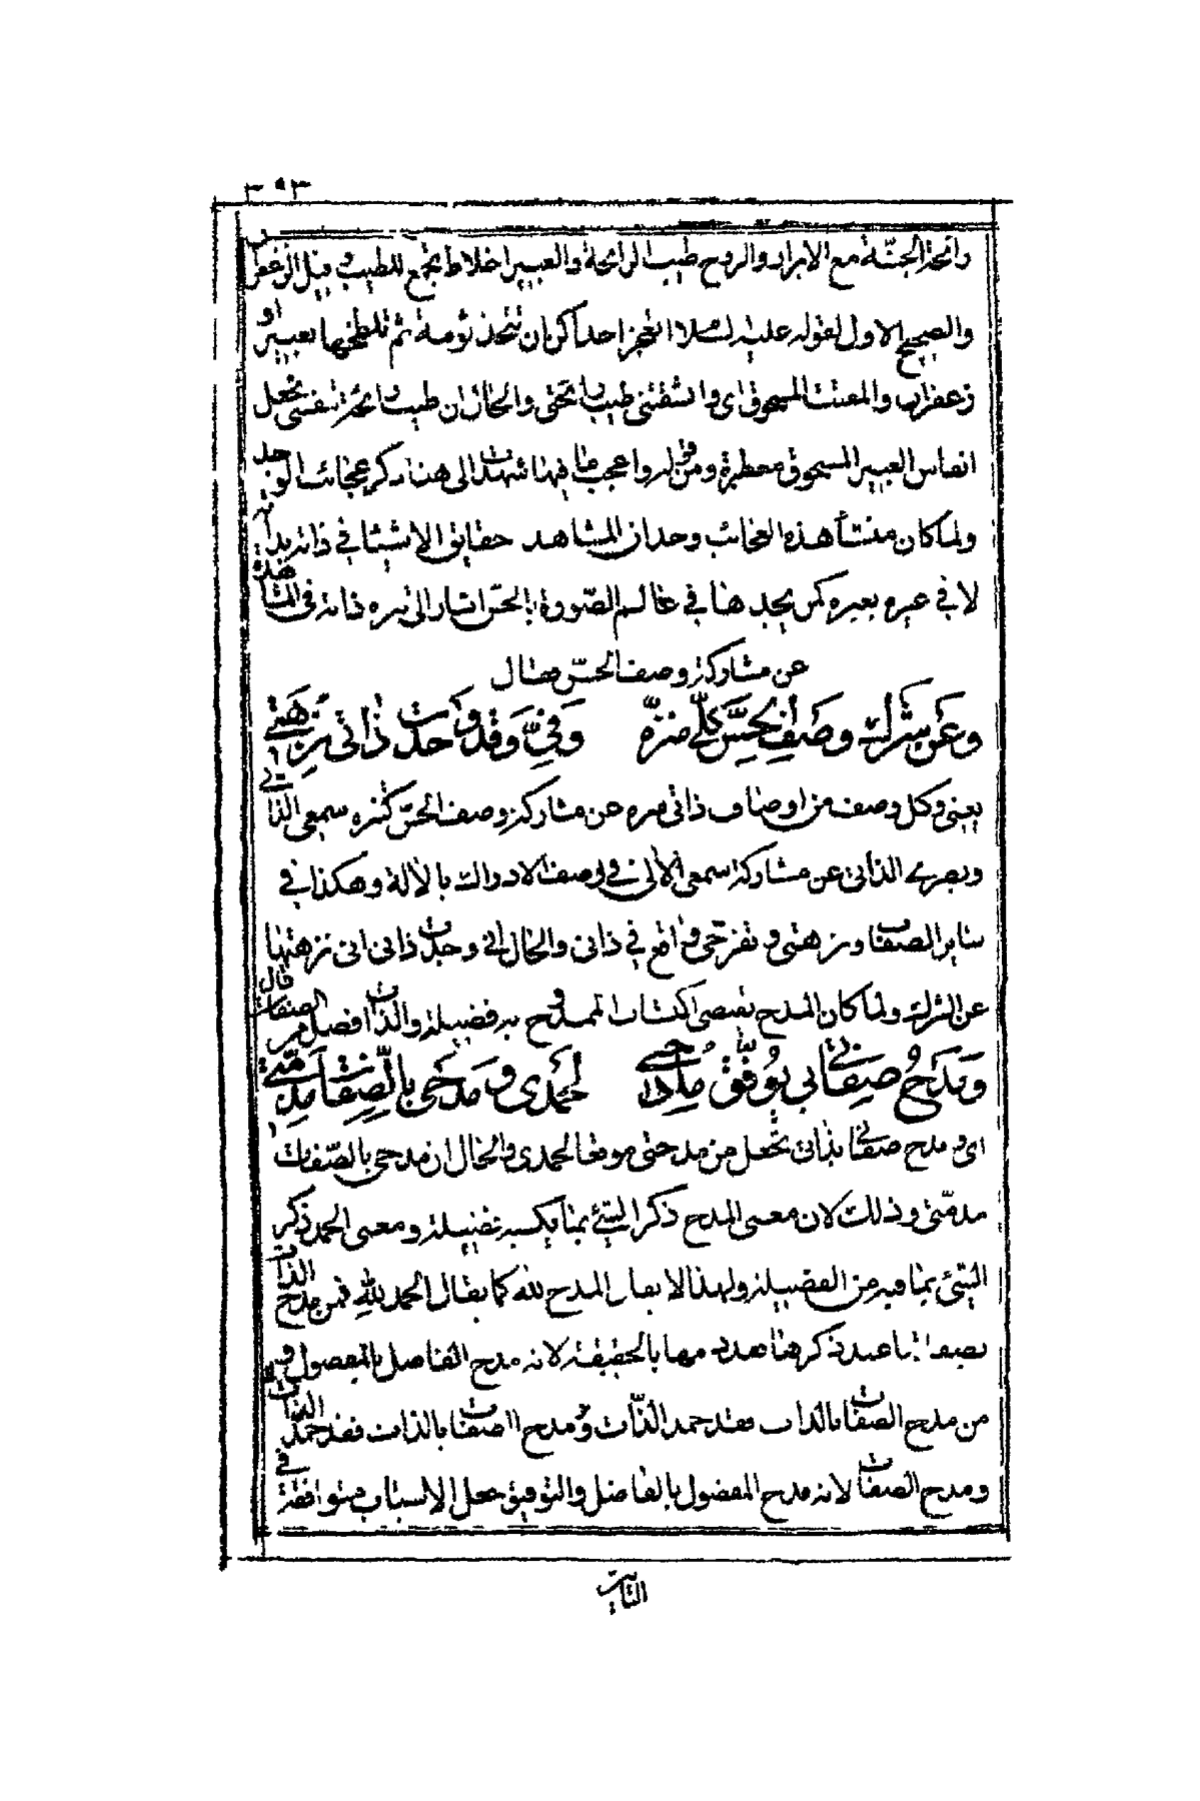 ٣٩٣
رائحة الجنة مع الابرار والروح طيب الرائحة والعبير اخلاط تجمع للطيب وقيل الزعفران
والصحيح الاول لقوله عليه السلام اتعجز احداكن ان تتخذ تومة ثم تلطخها بعبير او
زعفران والمفتت المسحوق اى وانشقتنى طيبا رائحتى والحال ان طيب رائحة نفسى تجعل
انفاس العبير المسحوق معطرة ومن قوله واعجب ما فيها شهدت الى هنا ذكر عجائب الوجد
ولما كان منشأ هذه العجائب وجدان المشاهد حقايق الاشيا في ذاته بذاته
لا في غيره بغيره كمن يجدها في عالم الصورة بالحس اشار الى تنزه ذاته في المشاهدة
عن مشاركة وصف الحس فقال
وعن شرك وصف الحس كلى منزه وفيّ وقد وحدت ذاتى نزهتى
يعنى وكل وصف من اوصاف ذاتى منزه عن مشاركة وصف الحس كتنزه سمعى الذاتى
وبصرى الذاتى عن مشاركة سمعى الآلى في وصف الادراك بالآلة وهكذا في
ساير الصفات ونزهتى وتفرجى واقع في ذاتى والحال انى وحدت ذاتى اى نزهتها
عن الشرك ولما كان المدح يقتضى اكتساب الممدوح به فضيلة والذات افضل من الصفات قال
ومدح صفاتى بي يوفق مادحى لحمدى ومدحى بالصفات مذمتى
اى ومدح صفاتى بذاتى تجعل من مدحنى موفقا لحمدى والحال ان مدحى بالصفات
مذمتى وذلك لان معنى المدح ذكر الشئ بما يكسبه فضيلة ومعنى الحمد ذكر
الشئ بما فيه من الفضيلة ولهذا لا يقال المدح لله كما يقال الحمد لله فمن مدح الذات
بصفاتها عند ذكرها فقد ذمها بالحقيقة لانه مدح الفاضل بالمفضول
من مدح الصفات بالذات فقد حمد الذات ومدح الصفات بالذات فقد حمد الذات
ومدح الصفات لانه مدح المفضول بالفاضل والتوفيق جعل الاسباب متوافقة في
التاسيس